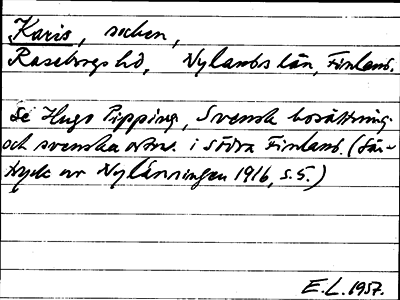 Karis, socken,
Raseborgs hd, Nylands län, Finland.
Se Hugo Pipping, Svensk bosättning
och svenska ortn. i södra Finland. (Sär-
tryck ur Nylänningen 1916, s. 5.)
E.L. 1957.